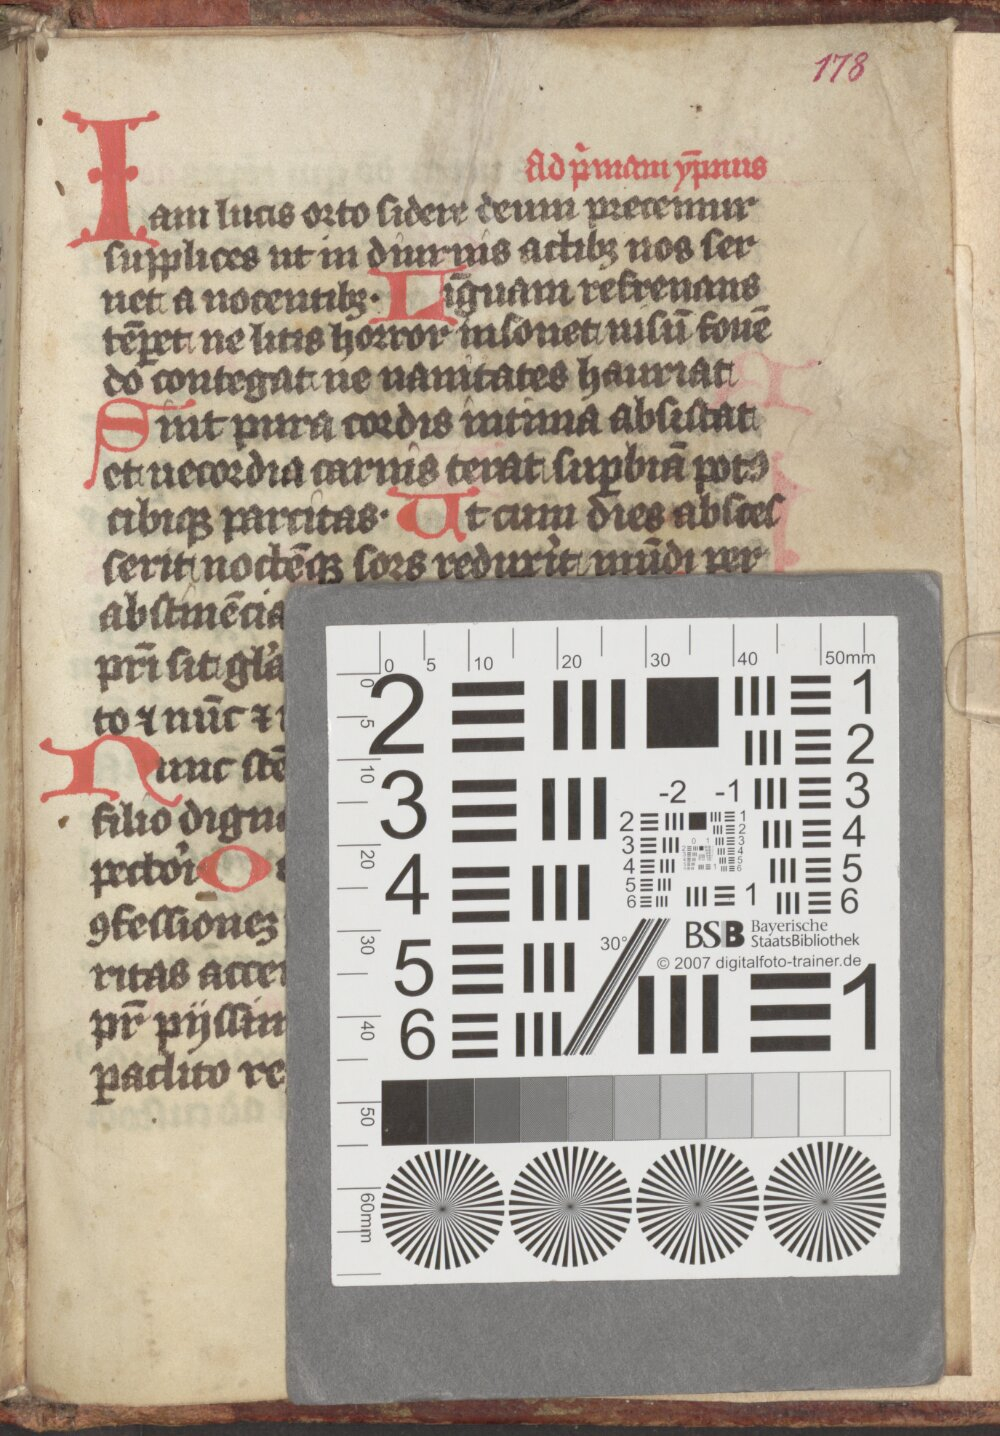 178
Ad p̄mam ẏp̄nus
Iam lucis orto sidere deum precemur
supplices ut in diurnis actibꝫ nos ser
uet a nocentibꝫ· Līguam refrenans
tēꝑet ne litis horror insonet uisū fouē
do contegat ne uanitates hauriat
Sint pura cordis intima absistat
et uecordia carnis terat suꝑbiā potꝰ
cibiqꝫ parcitas· Ut cum dies absces
serit noctēqꝫ sors reduxit mūdi per
abstinēcia
pr̄i sit gl̓a
to ⁊ nūc ⁊
Nunc sc̄e
filio digna
pectori O
ꝯfessionez
ritas accen
pr̄ pijssim
paclito re
0 5 10 20 30 40 50mm
0 5 10 20 30 40 50 60mm
2 1
2
3 3
4 4
5 5
6 6
-2 -1
2 1
3 2
4 3
5 4
6 5
6
1
30°
BSB Bayerische
StaatsBibliothek
© 2007 digitalfoto-trainer.de
1